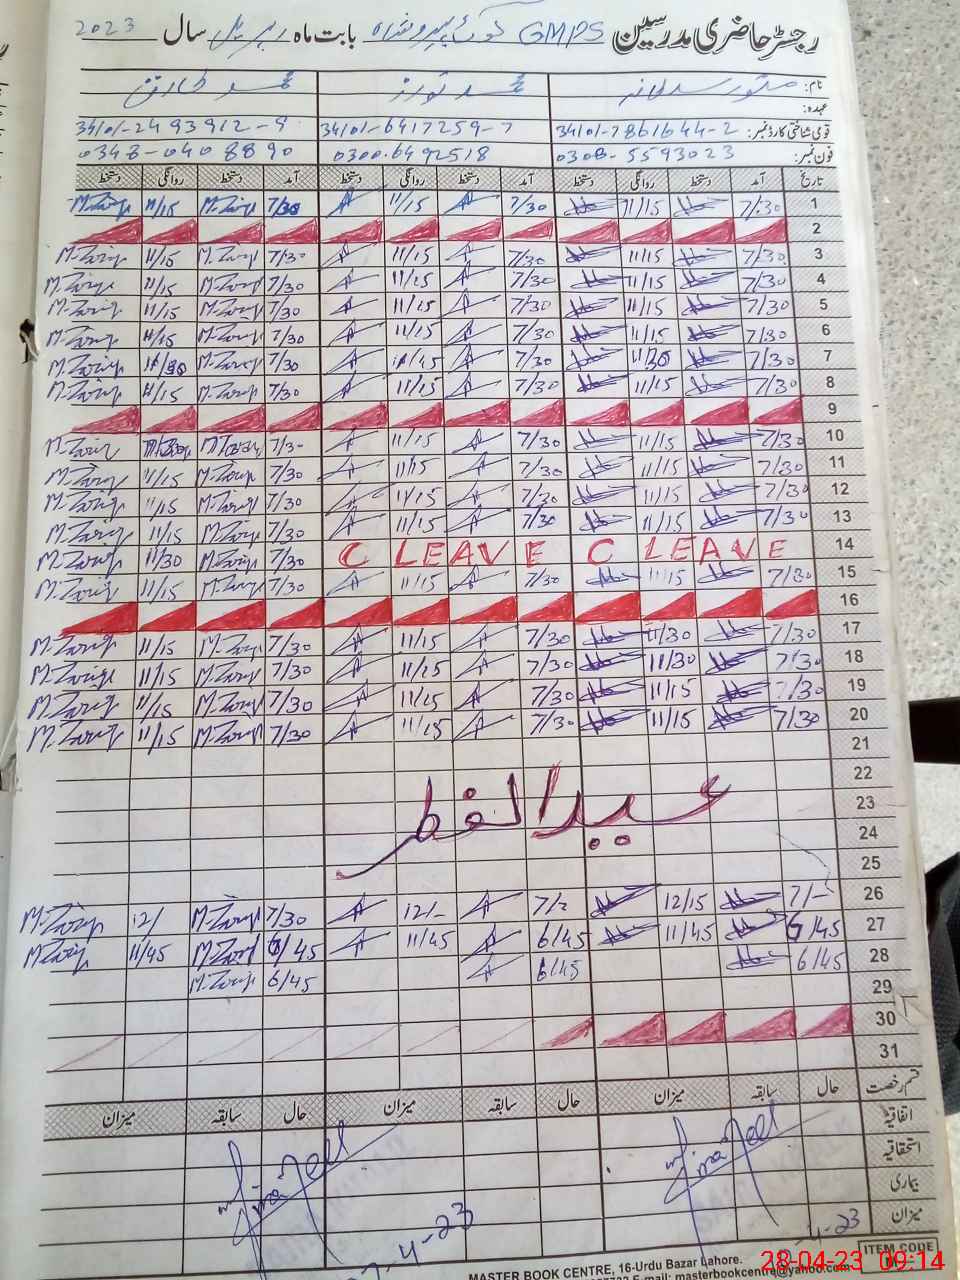 رجسٹر حاضری مدرسین GMPS بابت ماہ اپریل سال 2023
نام: محمد طارق
عہدہ:
قومی شناختی کارڈ نمبر: 34101-7861644-2 34101-6417259-7 34101-2493912-9
فون نمبر: 0308-5593023 0300-6492518 0348-0408890
تاریخ آمد دستخط روانگی دستخط آمد دستخط روانگی دستخط آمد دستخط روانگی دستخط
1 7/30 11/15 7/30 11/15 7/30 M.Tariq 11/15 M.Tariq
2
3 7/30 11/15 7/30 11/15 7/30 M.Tariq 11/15 M.Tariq
4 7/30 11/15 7/30 11/15 7/30 M.Tariq 11/15 M.Tariq
5 7/30 11/15 7/30 11/15 7/30 M.Tariq 11/15 M.Tariq
6 7/30 11/15 7/30 11/15 7/30 M.Tariq 11/15 M.Tariq
7 7/30 7/30 7/30 M.Tariq M.Tariq
8 7/30 11/15 7/30 11/15 7/30 M.Tariq 11/15 M.Tariq
9
10 7/30 11/15 7/30 11/15 7/30 M.Tariq M.Tariq
11 7/30 11/15 7/30 11/15 7/30 M.Tariq 11/15 M.Tariq
12 7/30 11/15 7/30 11/15 7/30 M.Tariq 11/15 M.Tariq
13 7/30 11/15 7/30 11/15 7/30 M.Tariq 11/15 M.Tariq
14 C LEAVE C LEAVE 7/30 M.Tariq 11/30 M.Tariq
15 7/30 11/15 7/30 11/15 7/30 M.Tariq 11/15 M.Tariq
16
17 7/30 11/30 7/30 11/15 7/30 M.Tariq 11/15 M.Tariq
18 7/30 11/30 7/30 11/15 7/30 M.Tariq 11/15 M.Tariq
19 7/30 11/15 7/30 11/15 7/30 M.Tariq 11/15 M.Tariq
20 7/30 11/15 7/30 11/15 7/30 M.Tariq 11/15 M.Tariq
21
22
23 عید الفطر
24
25
26 7/- 12/15 12/- 7/30 M.Tariq 12/ M.Tariq
27 6/45 11/45 6/45 11/45 6/45 M.Tariq 11/45 M.Tariq
28 6/45 6/45 6/45 M.Tariq
29
30
31
قسم رخصت حال سابقہ میزان حال سابقہ میزان حال سابقہ میزان
اتفاقیہ
استحقاقیہ
بیماری
میزان
4-23
4-23
ITEM CODE
MASTER BOOK CENTRE, 16-Urdu Bazar Lahore.
E-mail: masterbookcentre@yahoo.com
28-04-23 09:14